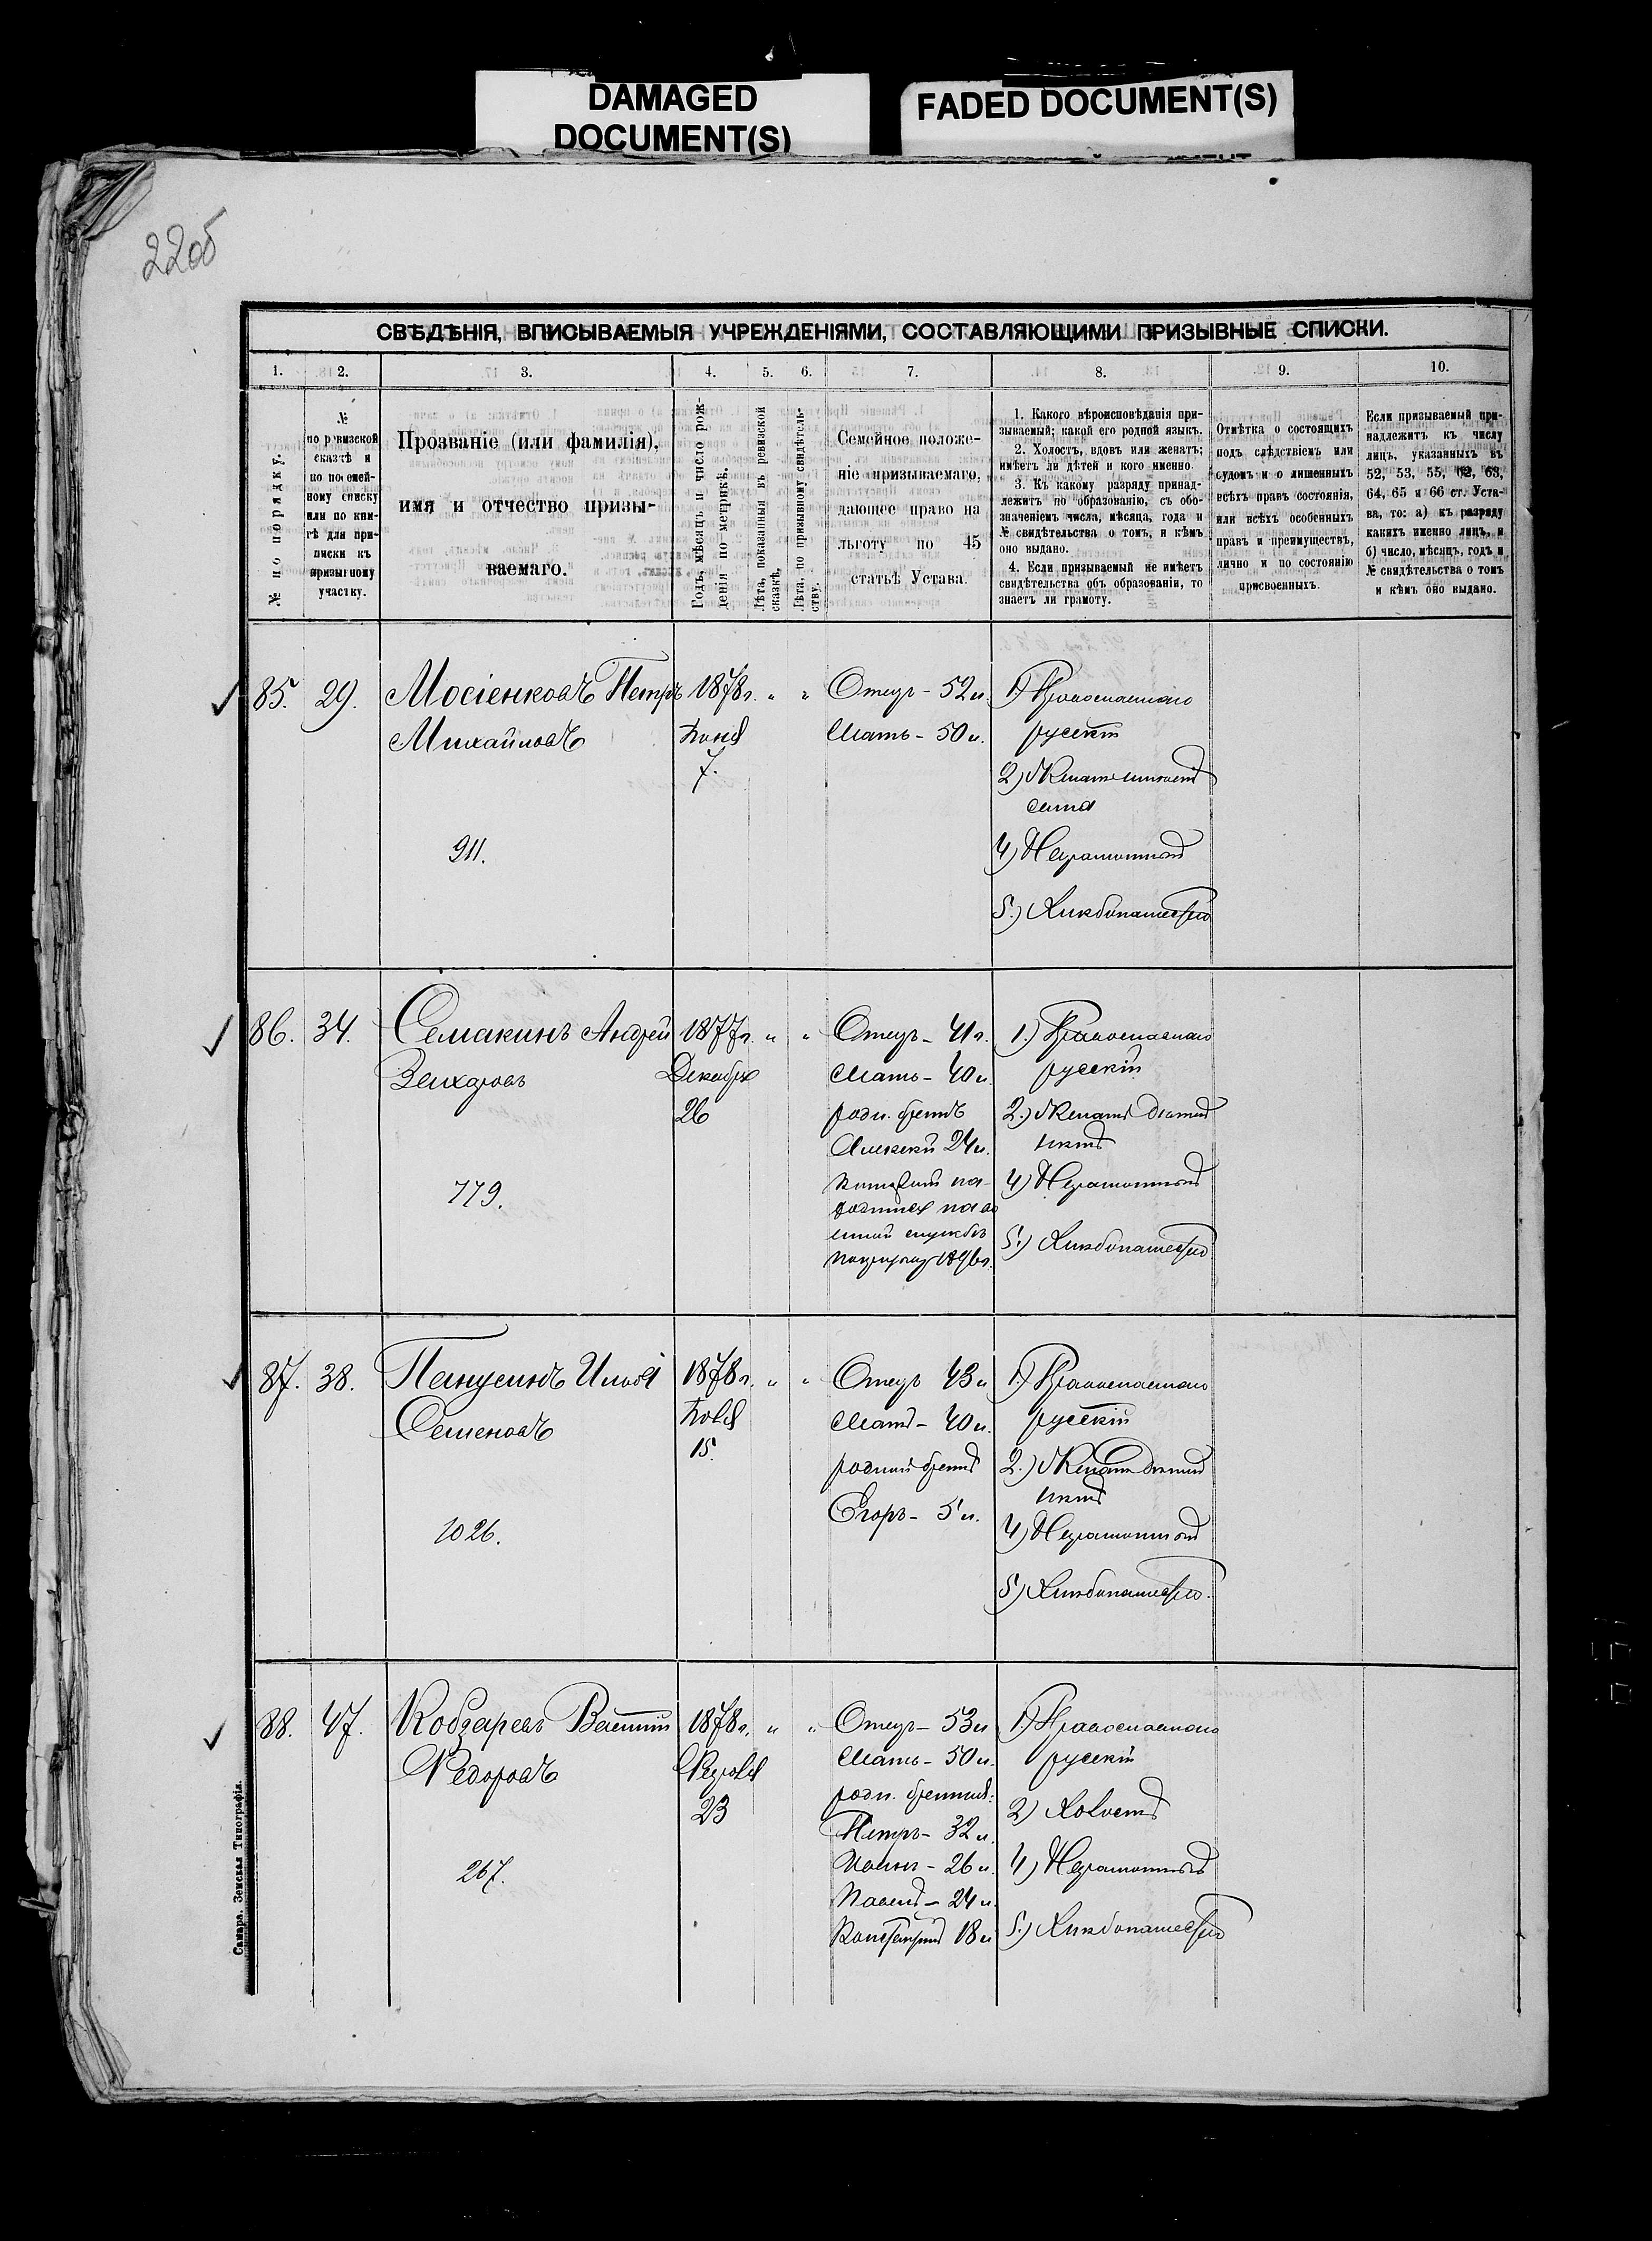 DAMAGED
DOCUMENT(S)
FADED DOCUMENT(S)
22об
СВѢДѢНІЯ, ВПИСЫВАЕМЫЯ УЧРЕЖДЕНІЯМИ, СОСТАВЛЯЮЩИМИ ПРИЗЫВНЫЕ СПИСКИ.
1. 2. 3. 4. 5. 6. 7. 8. 9. 10.
№ по порядку.
№
по ревизской
сказкѣ и
по посемей-
ному списку
или по кни-
гѣ для при-
писки къ
призывному
участку.
Прозваніе (или фамилія),
имя и отчество призы-
ваемаго.
Годъ, мѣсяцъ и число рож-
денія по метрикѣ.
Лѣта, показанныя въ ревизской
сказкѣ.
Лѣта, по призывному свидѣтель-
ству.
Семейное положе-
ніе призываемаго,
дающее право на
льготу по 45
статьѣ Устава.
1. Какого вѣроисповѣданія при-
зываемый; какой его родной языкъ.
2. Холостъ, вдовъ или женатъ;
имѣетъ ли дѣтей и кого именно.
3. Къ какому разряду принад-
лежитъ по образованію, съ обо-
значеніемъ числа, мѣсяца, года и
№ свидѣтельства о томъ, и кѣмъ
оно выдано.
4. Если призываемый не имѣетъ
свидѣтельства объ образованіи, то
знаетъ ли грамоту.
Отмѣтка о состоящихъ
подъ слѣдствіемъ или
судомъ и о лишенныхъ
всѣхъ правъ состоянія,
или всѣхъ особенныхъ
правъ и преимуществъ,
лично и по состоянію
присвоенныхъ.
Если призываемый при-
надлежитъ къ числу
лицъ, указанныхъ въ
52, 53, 55, 62, 63,
64, 65 и 66 ст. Уста-
ва, то: а) къ разряду
какихъ именно лицъ, и
б) число, мѣсяцъ, годъ и
№ свидѣтельства о томъ
и кѣмъ оно выдано.
85. 29.
Мосіенковъ Петръ
Михайловъ
911.
1878 г. " "
Іюня
7.
Отцу - 52 л.
Мать - 50 л.
1) Православнаго
русскій
2) Женатъ имѣетъ
сына
4) Неграмотный
5.) Хлѣбопашество
86. 34.
Семакинъ Андрей
779.
1877 г. " "
Декабря
26
Отцу - 41 г.
Мать - 40 л.
родн. братъ
Алексѣй 24 л.
который на-
ходится на во
енной службѣ
1896 г.
1.) Православнаго
русскій
2.) Женатъ дѣтей
нѣтъ
4) Неграмотный
5.) Хлѣбопашество
87. 38.
Панусинъ Илья
Семеновъ
1026.
1878 г. " "
Іюля
15.
Отцу 43 л
Мать - 40 л.
родной братъ
Егоръ - 5 л.
1) Православнаго
русскій
2.) Женатъ дѣтей
нѣтъ
4) Неграмотный
5) Хлѣбопашество.
88. 47.
Кобзаревъ Василій
Ѳедоровъ
267.
1878 г. " "
23
Отцу - 53 л
Мать - 50 л.
родн. братья:
Петръ - 32 л.
26 л.
Павелъ - 24 л.
Константинъ 18 л
1.) Православнаго
русскій
2) Холостъ
4) Неграмотный
5.) Хлѣбопашество
Самара. Земская Типографія.